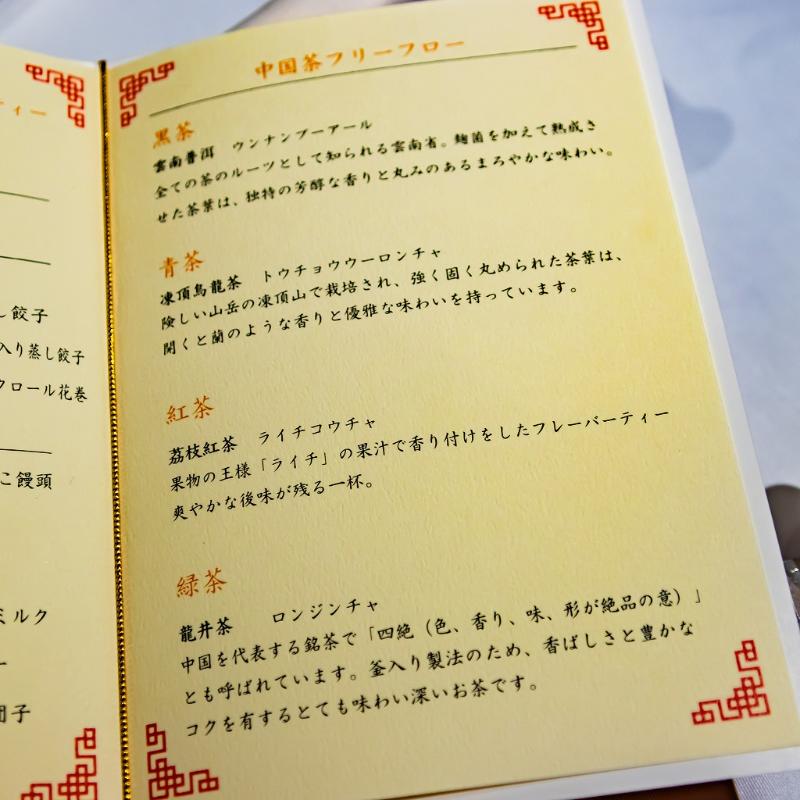 ティー
し餃子
入り蒸し餃子
クロール花巻
こ饅頭
ミルク
団子
中国茶フリーフロー
黒茶
雲南普洱 ウンナンプーアール
全ての茶のルーツとして知られる雲南省。麹菌を加えて熟成さ
せた茶葉は、独特の芳醇な香りと丸みのあるまろやかな味わい。
青茶
凍頂烏龍茶 トウチョウウーロンチャ
険しい山岳の凍頂山で栽培され、強く固く丸められた茶葉は、
開くと蘭のような香りと優雅な味わいを持っています。
紅茶
茘枝紅茶 ライチコウチャ
果物の王様「ライチ」の果汁で香り付けをしたフレーバーティー
爽やかな後味が残る一杯。
緑茶
龍井茶 ロンジンチャ
中国を代表する銘茶で「四絶（色、香り、味、形が絶品の意）」
とも呼ばれています。釜入り製法のため、香ばしさと豊かな
コクを有するとても味わい深いお茶です。